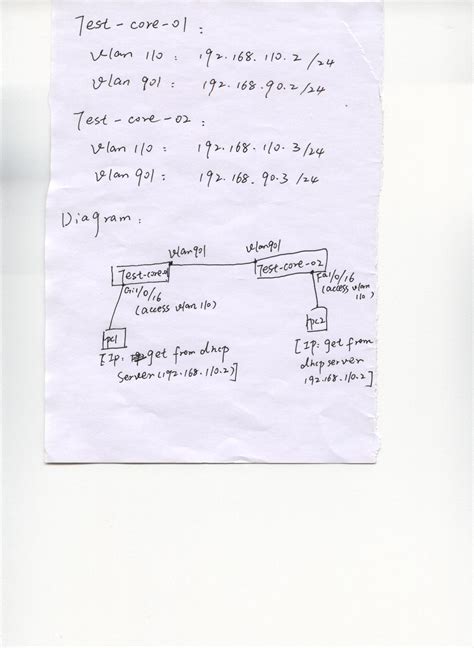 Test-core-01:
vlan 110: 192.168.110.2/24
vlan 901: 192.168.90.2/24
Test-core-02:
vlan 110: 192.168.110.3/24
vlan 901: 192.168.90.3/24
Diagram:
vlan901 vlan901
Test-core-01 Test-core-02
Gi1/0/16 Fa1/0/16
(access vlan 110) (access vlan
110)
pc1 pc2
[Ip: get from dhcp
server (192.168.110.2)]
[IP: get from
dhcp server
192.168.110.2]